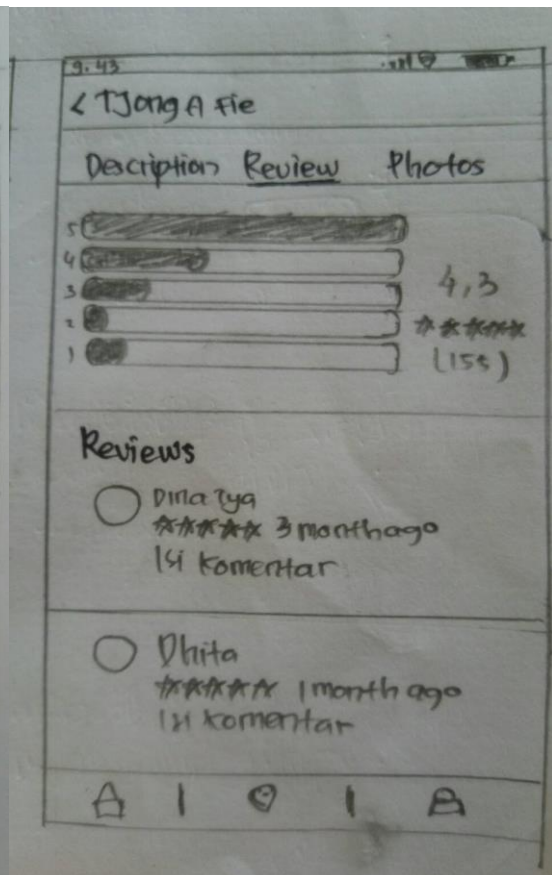 9.43
< TJong A Fie
Description Review Photos
5
4
3
2
1
4,3
★★★★★
(155)
Reviews
Dina Tya
★★★★★ 3 month ago
Isi Komentar
Dhita
★★★★★ 1 month ago
Isi Komentar